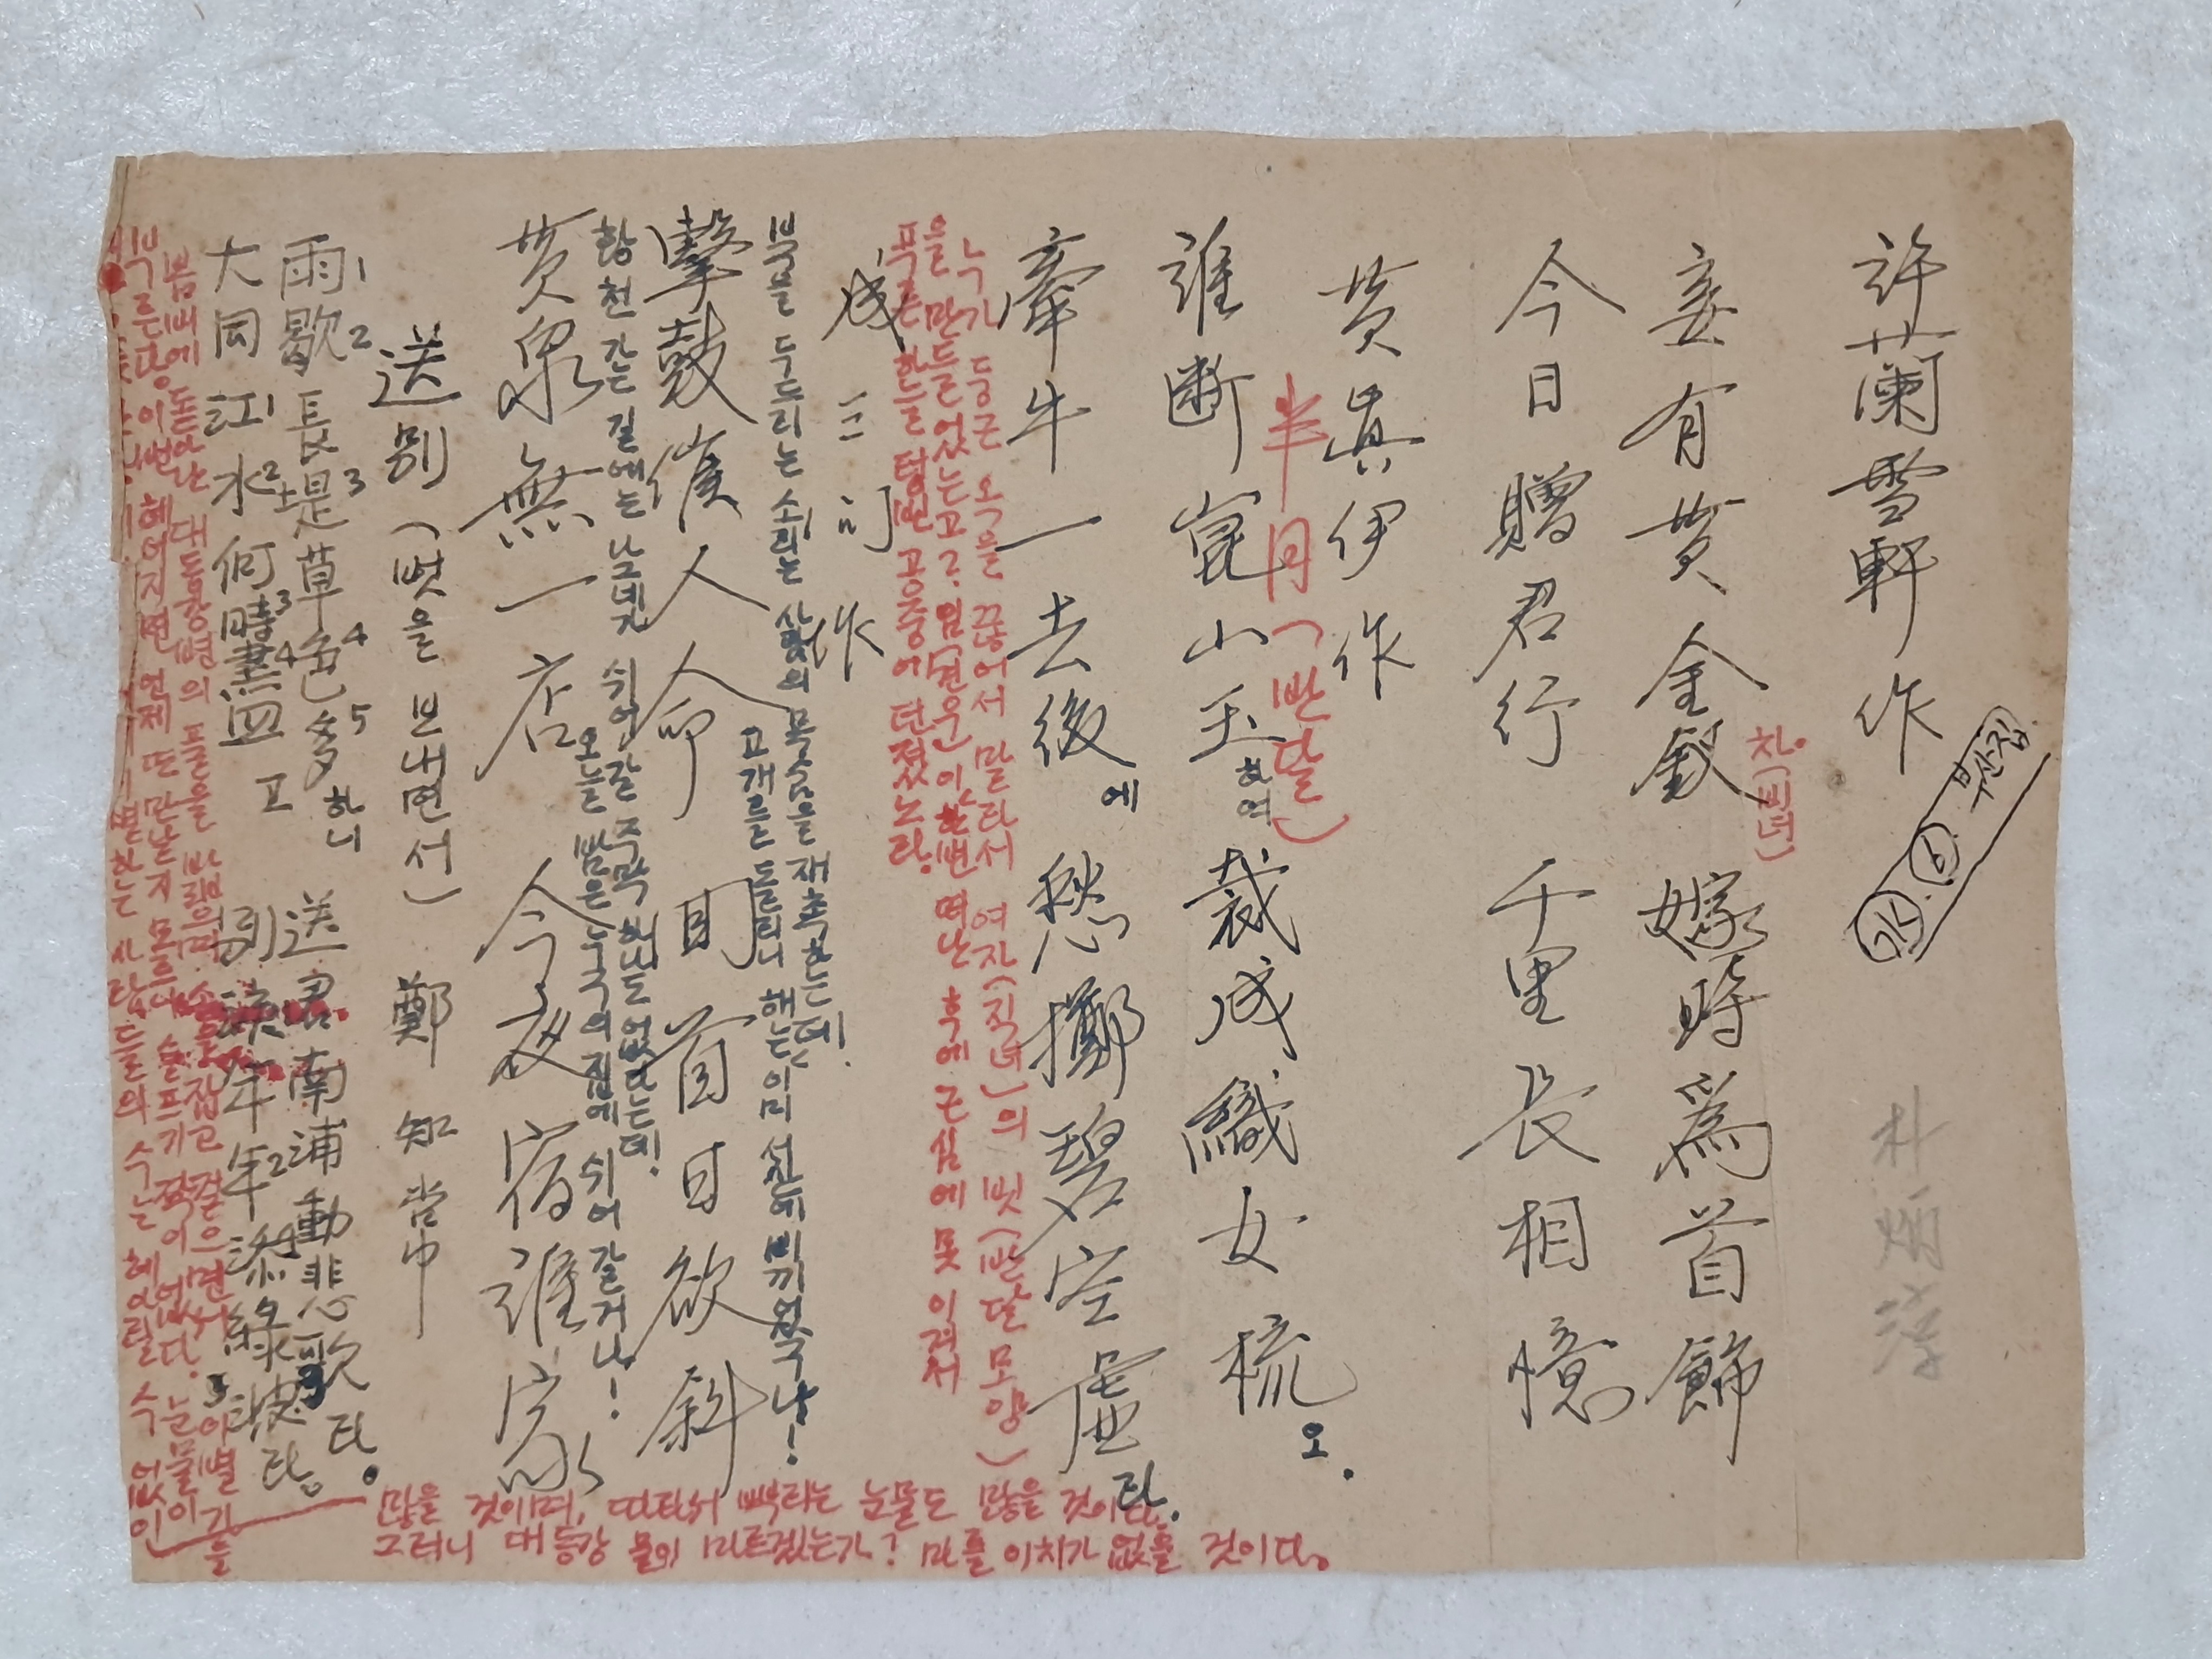 許蘭雪軒作
부산점
妾有黃金釵 嫁時爲首飾
차(비녀)
今日贈君行 千里長相憶
黃眞伊作
半月(반달)
誰斷崑山玉하여 裁成織女梳오.
牽牛一去後에 愁擲碧空虛라.
누가 둥근 옥을 끊어서 말라서 여자(직녀)의 빗(반달모양)
을 만들었는고? 임(견우)이 한번 떠난 후에 근심에 못 이겨서
푸른 하늘 텅 빈 공중에 던졌노라.
成三問 作
북을 두드리는 소리는 사람의 목숨을 재촉하는데!
고개를 돌리니 해는 이미 서산에 비끼었구나!
擊鼓催人命 回首日欲斜
황천 가는 길에는 나그네가 쉬어갈 주막 하나도 없다는데!
오늘 밤은 누구의 집에 쉬어 갈거나!
黃泉無一店 今夜宿誰家
送別(벗을 보내면서) 鄭知常
雨1歇2長堤3草色4多5하니 送君南浦動悲歌3라.
大同江1水2何時3盡4고 別淚年年2添綠波3라。
봄비에 돋아난 대동강변의 풀들을
부른다. 이번에 헤어지면 언제 또 만날지 모르니 슬프기 짝이 없다.
많을 것이며, 따라서 뿌리는 눈물도 많을 것이다.
그러니 대동강 물이 마르겠는가? 마를 이치가 없을 것이다。